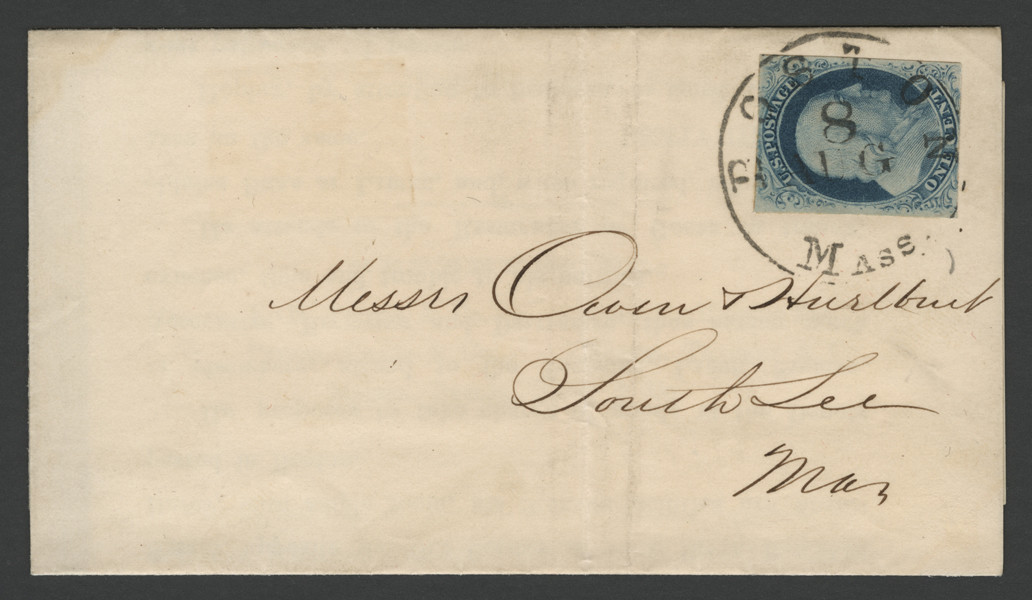 BOSTON
8
AUG
MASS.
U.S. POSTAGE
ONE CENT
Messrs Owen & Hurlbut
South Lee
Mas